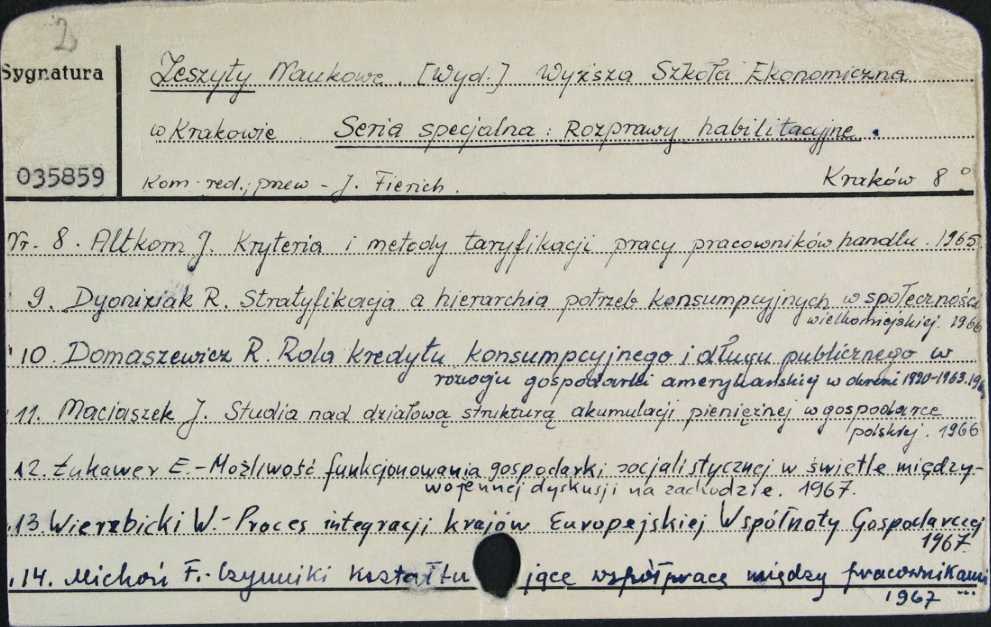 2
Sygnatura
Zeszyty Naukowe. [Wyd.] Wyższa Szkoła Ekonomiczna
w Krakowie. Seria specjalna: Rozprawy habilitacyjne.
035859
Kom. red.; przew - J. Fierich.
Kraków 8°
Nr. 8. Altkorn J. Kryteria i metody taryfikacji pracy pracowników handlu. 1965.
9. Dyoniziak R. Stratyfikacja a hierarchia potrzeb konsumpcyjnych w społeczności
wielkomiejskiej. 1966
10. Domaszewicz R. Rola kredytu konsumpcyjnego i długu publicznego w
rozwoju gospodarki amerykańskiej w okresie 1920-1963.
11. Maciaszek J. Studia nad działową strukturą akumulacji pieniężnej w gospodarce
polskiej. 1966
12. Łukawer E. - Możliwość funkcjonowania gospodarki socjalistycznej w świetle między-
wojennej dyskusji na zachodzie. 1967.
13. Wierzbicki W. - Proces integracji krajów Europejskiej Wspólnoty Gospodarczej
1967.
14. Michoń F. - Czynniki kształtujące współpracę między pracownikami
1967 ...